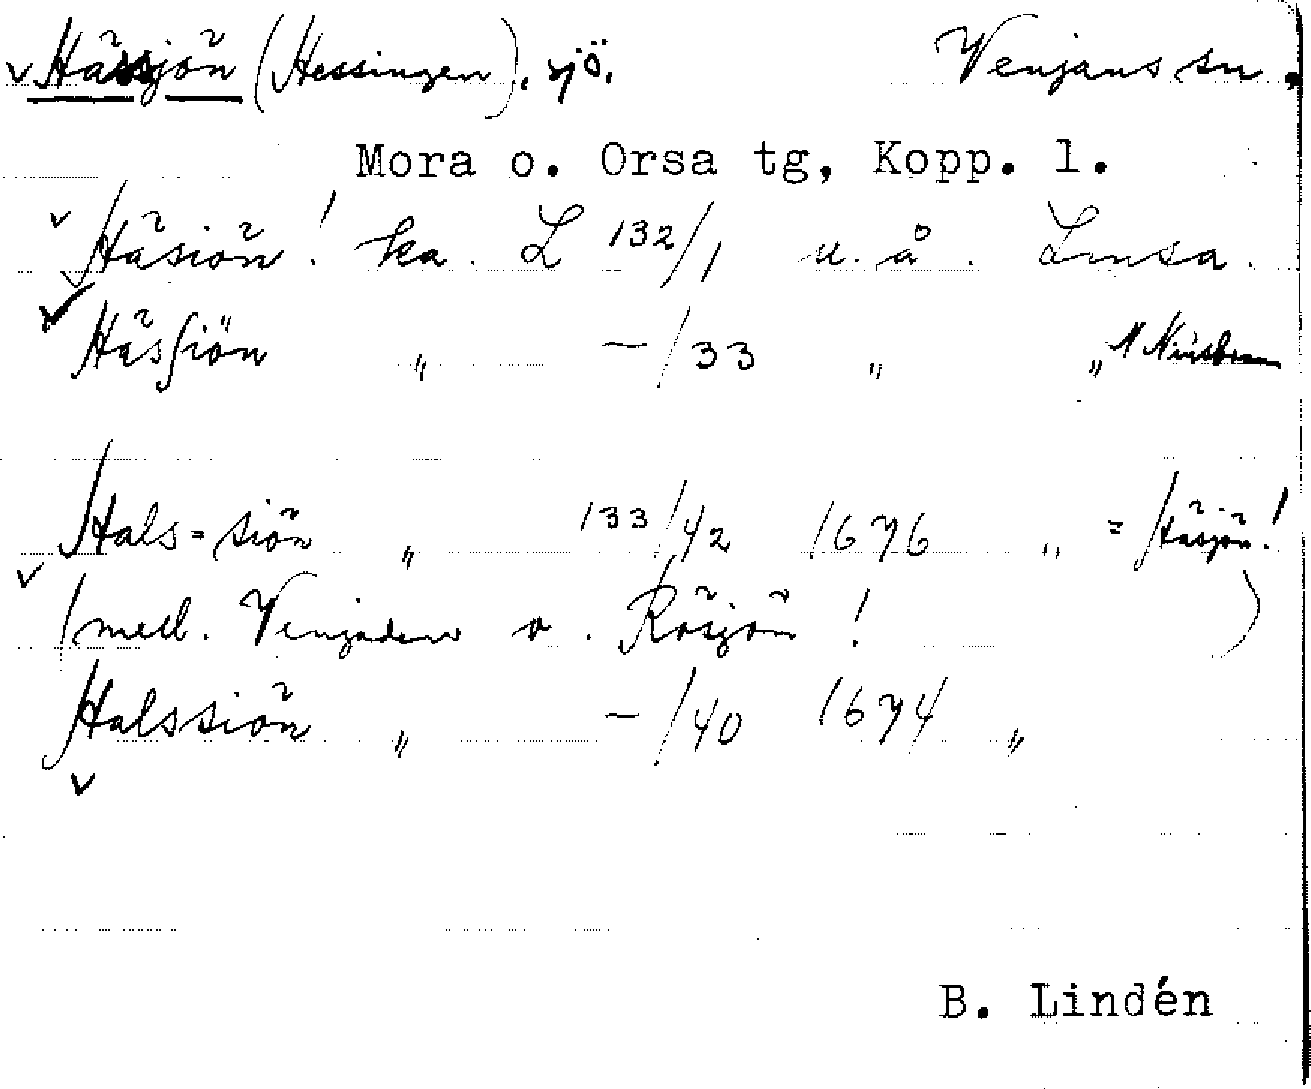 Häsjön (Hessingen), sjö. Venjans sn.
Mora o. Orsa tg, Kopp. l.
Häsiön! ka. L 132/1 u. å. Lmsa.
Häsſiön „ — /33 „ „
Hals=siön „ 133/42 1676 „ = Häsjön!
(mell. Venjaden o. Rösjön! )
Halssiön „ — /40 1674 „
B. Lindén